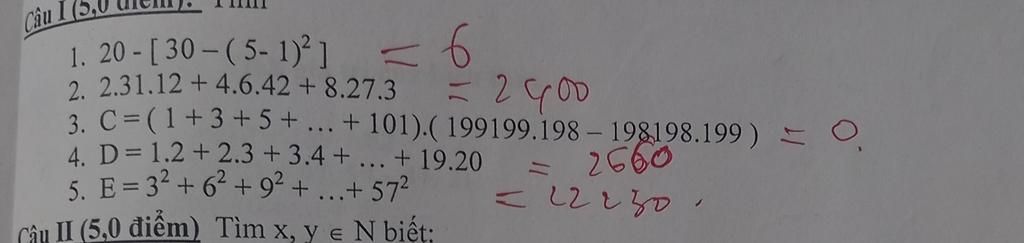 Câu I (5,0 điểm). Tính
1. 20 - [ 30 – ( 5- 1)² ] = 6
2. 2.31.12 + 4.6.42 + 8.27.3 = 2400
3. C = ( 1 + 3 + 5 + … + 101).( 199199.198 – 198198.199 ) = 0.
4. D = 1.2 + 2.3 + 3.4 + … + 19.20 = 2660
5. E = 3² + 6² + 9² + …+ 57² = 22230.
Câu II (5,0 điểm) Tìm x, y ∈ N biết: